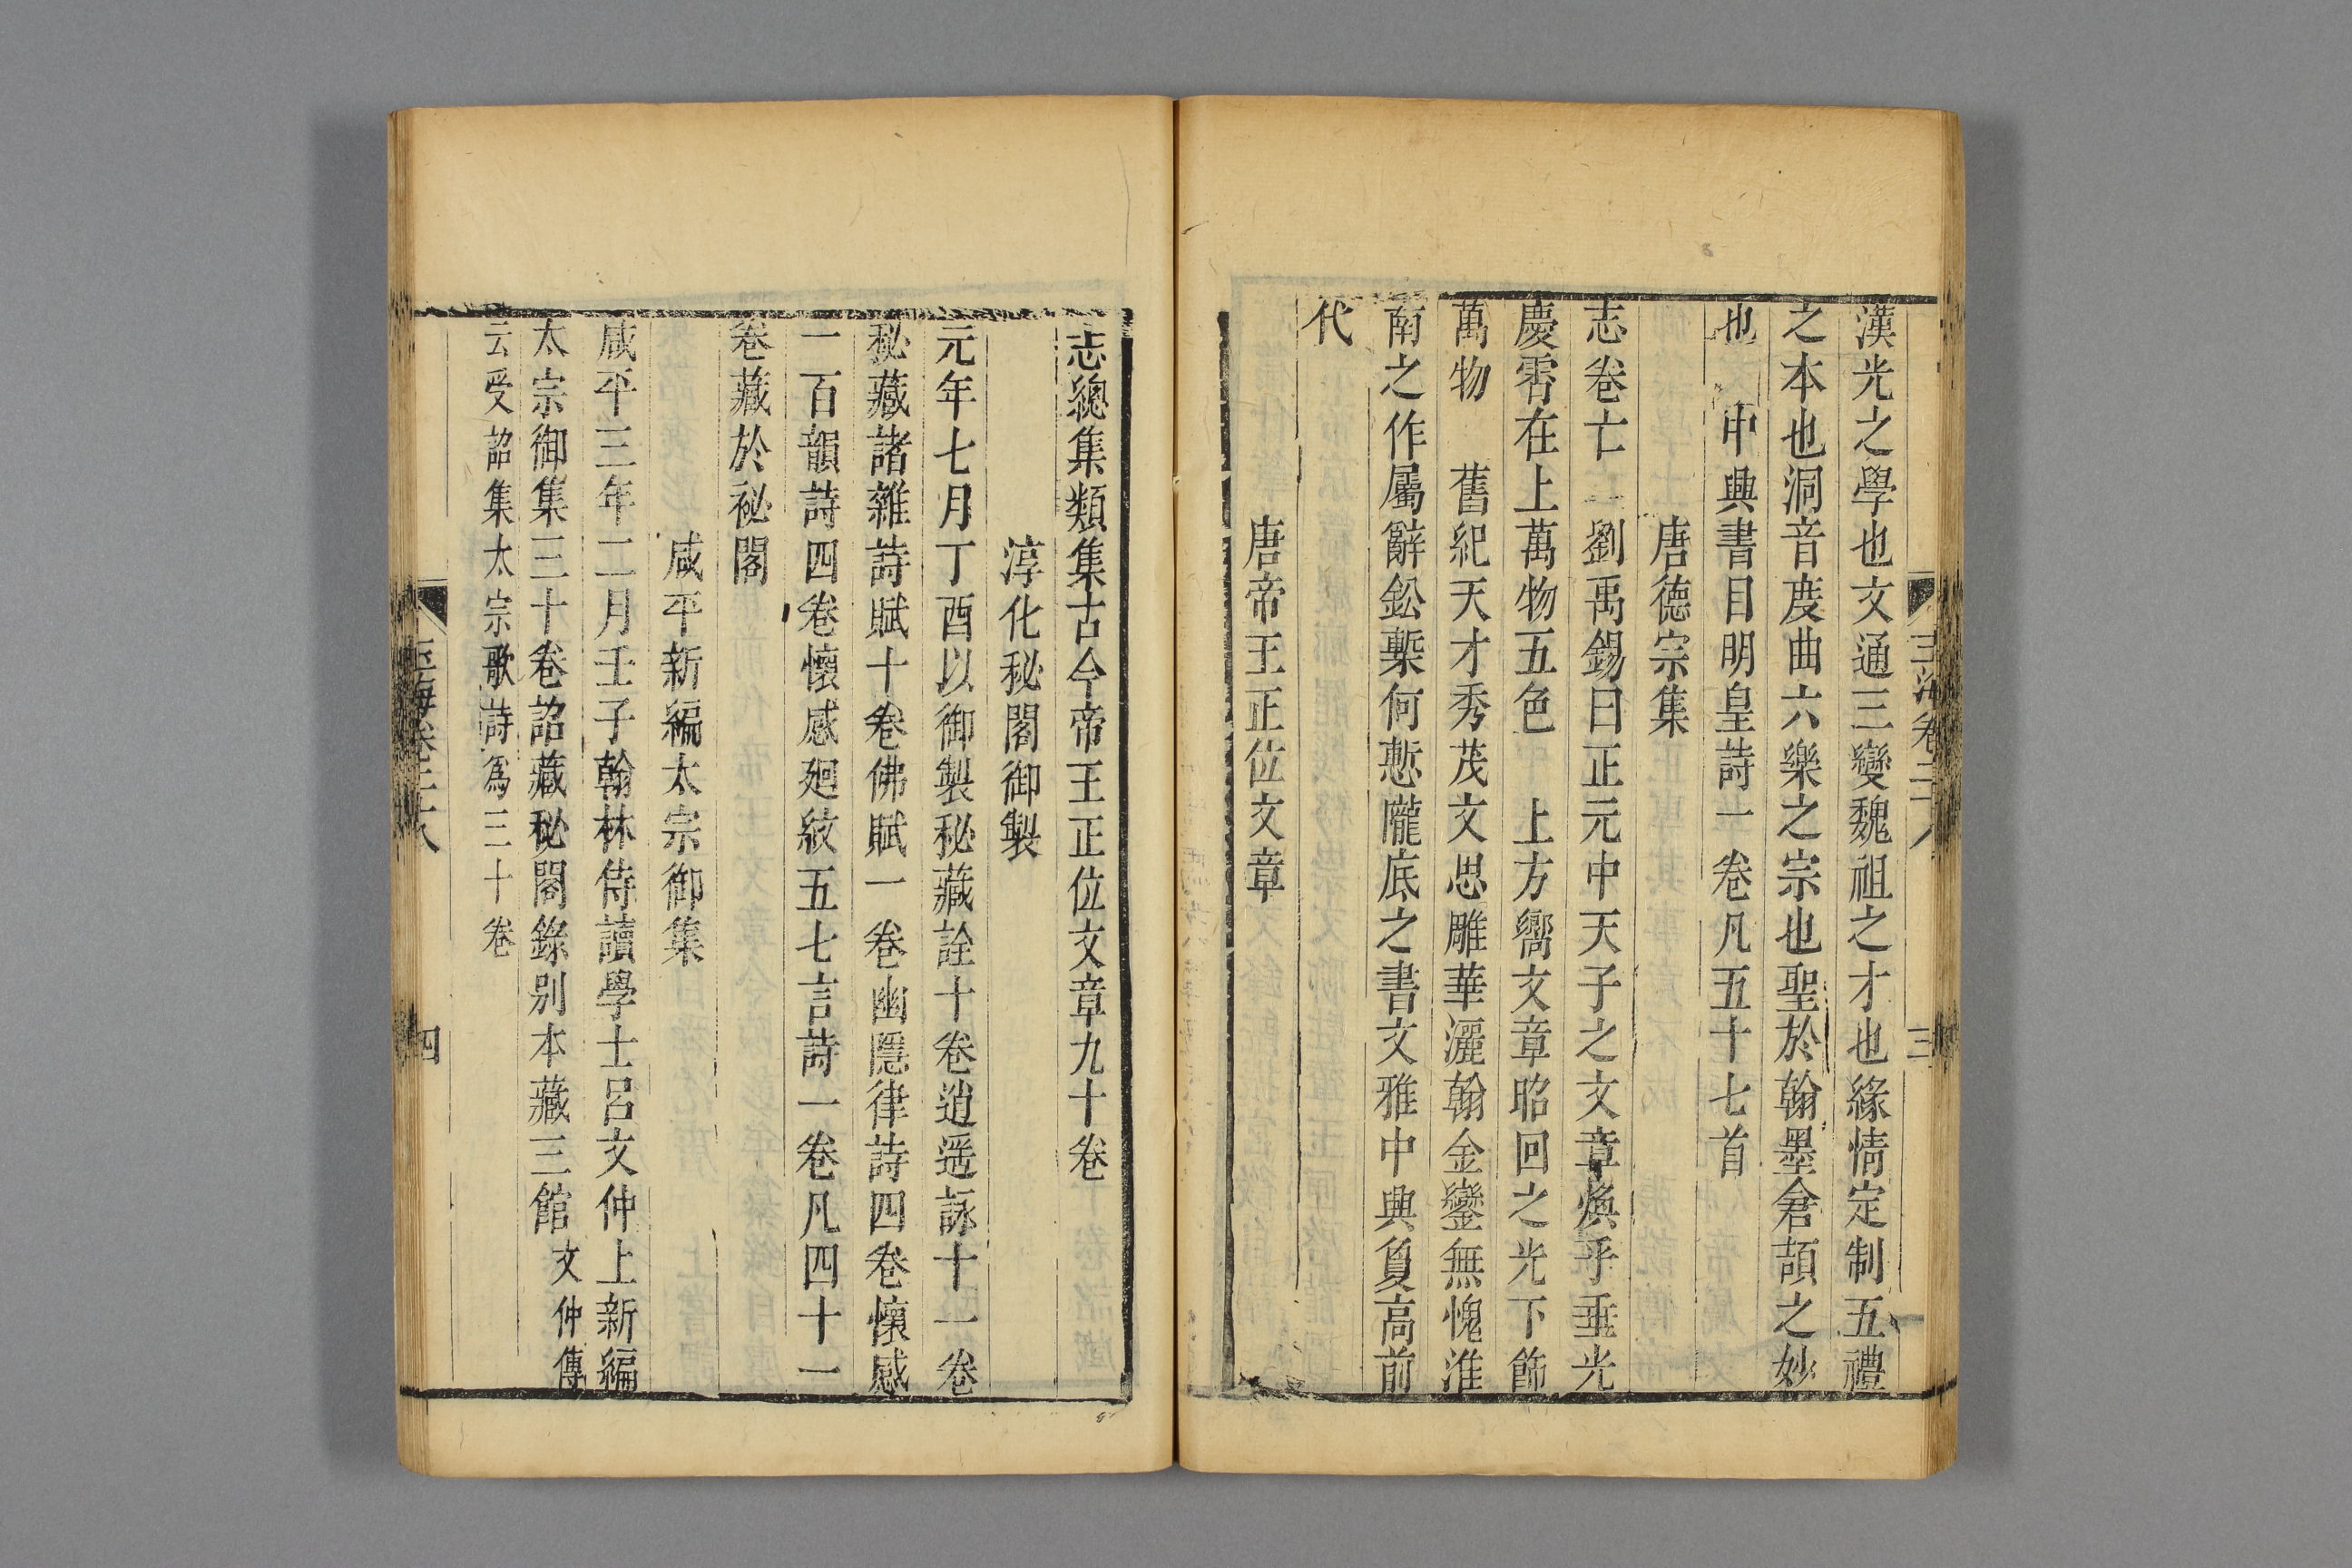 漢光之學也文通三變魏祖之才也緣情定制五禮
之本也洞音度曲六樂之宗也聖於翰墨倉頡之妙
也 中興書目明皇詩一卷凡五十七首
唐德宗集
志卷亡 劉禹錫曰正元中天子之文章煥乎垂光
慶霄在上萬物五色 上方嚮文章昭回之光下飾
萬物 舊紀天才秀茂文思雕華灑翰金鑾無愧淮
南之作屬辭鈆槧何慙隴底之書文雅中興夐高前
代
唐帝王正位文章
玉海卷二十八
三
志總集類集古今帝王正位文章九十卷
淳化秘閣御製
元年七月丁酉以御製秘藏詮十卷逍遥詠十一卷
秘藏諸雜詩賦十卷佛賦一卷幽隱律詩四卷懷感
一百韻詩四卷懷感廻紋五七言詩一卷凡四十一
卷藏於祕閣
咸平新編太宗御集
咸平三年二月壬子翰林侍讀學士呂文仲上新編
太宗御集三十卷詔藏秘閣錄别本藏三館 文仲傳
云受詔集太宗歌詩爲三十卷
玉海卷二十八
四